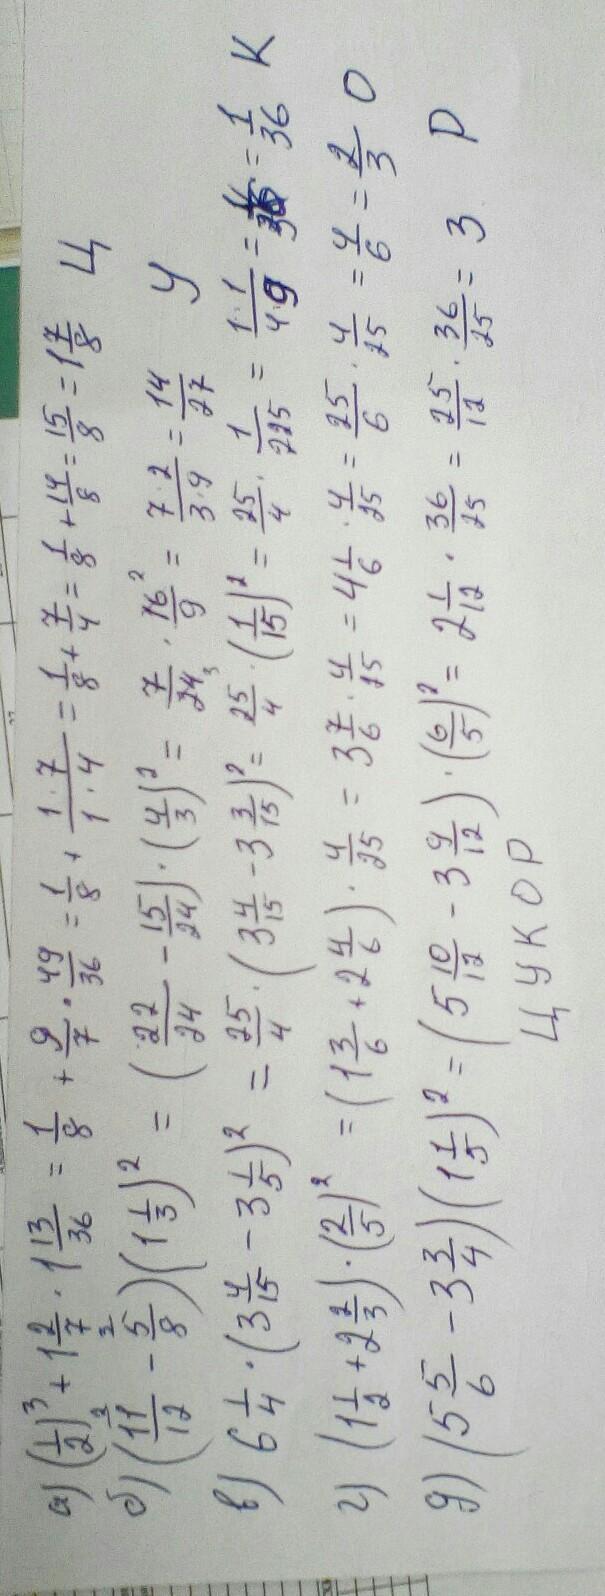 а) (1/2)³ + 1 2/7 · 1 13/36 = 1/8 + 9/7 · 49/36 = 1/8 + 1·7/1·4 = 1/8 + 7/4 = 1/8 + 14/8 = 15/8 = 1 7/8 Ц
б) (11/12 - 5/8)(1 1/3)² = (22/24 - 15/24) · (4/3)² = 7/24 · 16/9 = 7·2/3·9 = 14/27 У
в) 6 1/4 · (3 4/15 - 3 1/5)² = 25/4 · (3 4/15 - 3 3/15)² = 25/4 · (1/15)² = 25/4 · 1/225 = 1·1/4·9 = 1/36 К
г) (1 1/2 + 2 2/3) · (2/5)² = (1 3/6 + 2 4/6) · 4/25 = 3 7/6 · 4/25 = 4 1/6 · 4/25 = 25/6 · 4/25 = 4/6 = 2/3 О
д) (5 5/6 - 3 3/4)(1 1/5)² = (5 10/12 - 3 9/12) · (6/5)² = 2 1/12 · 36/25 = 25/12 · 36/25 = 3 Р
ЦУКОР